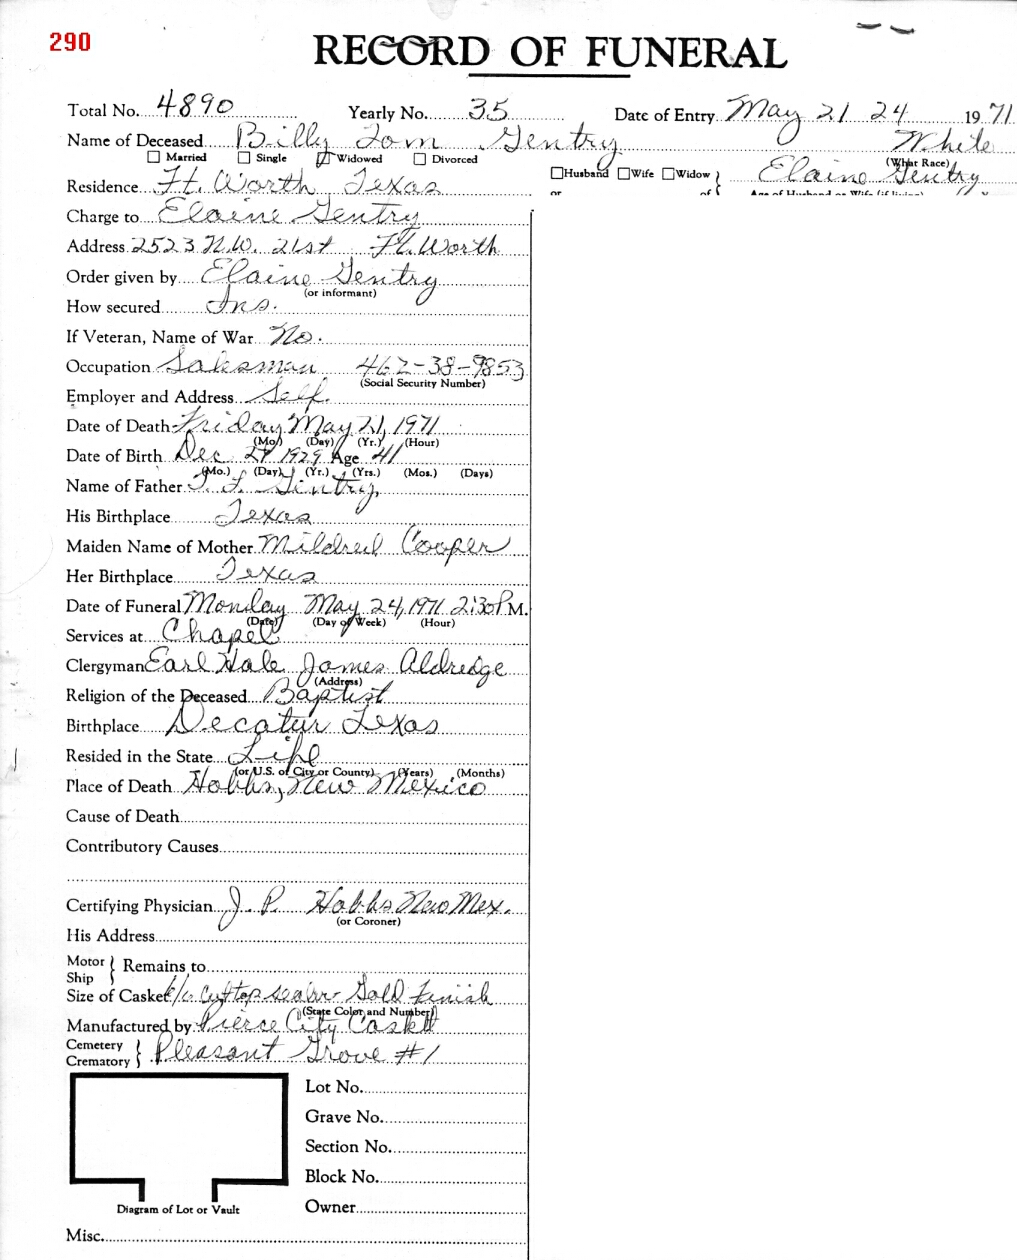 290
RECORD OF FUNERAL
Total No. 4890 Yearly No. 35 Date of Entry May 21 24 1971
Name of Deceased Billy Tom Gentry White
Married Single Widowed Divorced (What Race)
Husband Wife Widow } Elaine Gentry
or of Age of Husband or Wife (if living)
Residence Ft. Worth Texas
Charge to Elaine Gentry
Address 2523 N.W. 21st Ft. Worth
Order given by Elaine Gentry
(or informant)
How secured Ins.
If Veteran, Name of War No.
Occupation Salesman 462-38-9853
(Social Security Number)
Employer and Address Self.
Date of Death Friday May 21, 1971
(Mo.) (Day) (Yr.) (Hour)
Date of Birth Dec 27 1929 Age 41
(Mo.) (Day) (Yr.) (Yrs.) (Mos.) (Days)
Name of Father T. F. Gentry,
His Birthplace Texas
Maiden Name of Mother Mildred Cooper
Her Birthplace Texas
Date of Funeral Monday May 24, 1971 2:30 P M.
(Date) (Day of Week) (Hour)
Services at Chapel
Clergyman Earl Hale James Aldredge
(Address)
Religion of the Deceased Baptist
Birthplace Decatur Texas
Resided in the State Life
(or U.S. or City or County) (Years) (Months)
Place of Death Hobbs, New Mexico
Cause of Death
Contributory Causes
Certifying Physician J. P. Hobbs New Mex.
(or Coroner)
His Address
Motor Ship } Remains to
Size of Casket sealer Gold Finish
(State Color and Number)
Manufactured by Pierce City Caskt
Cemetery Crematory } Pleasant Grove #1
Lot No.
Grave No.
Section No.
Block No.
Diagram of Lot or Vault Owner
Misc.